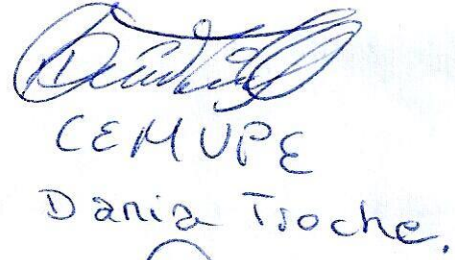 CEMUPE
Dania Troche.